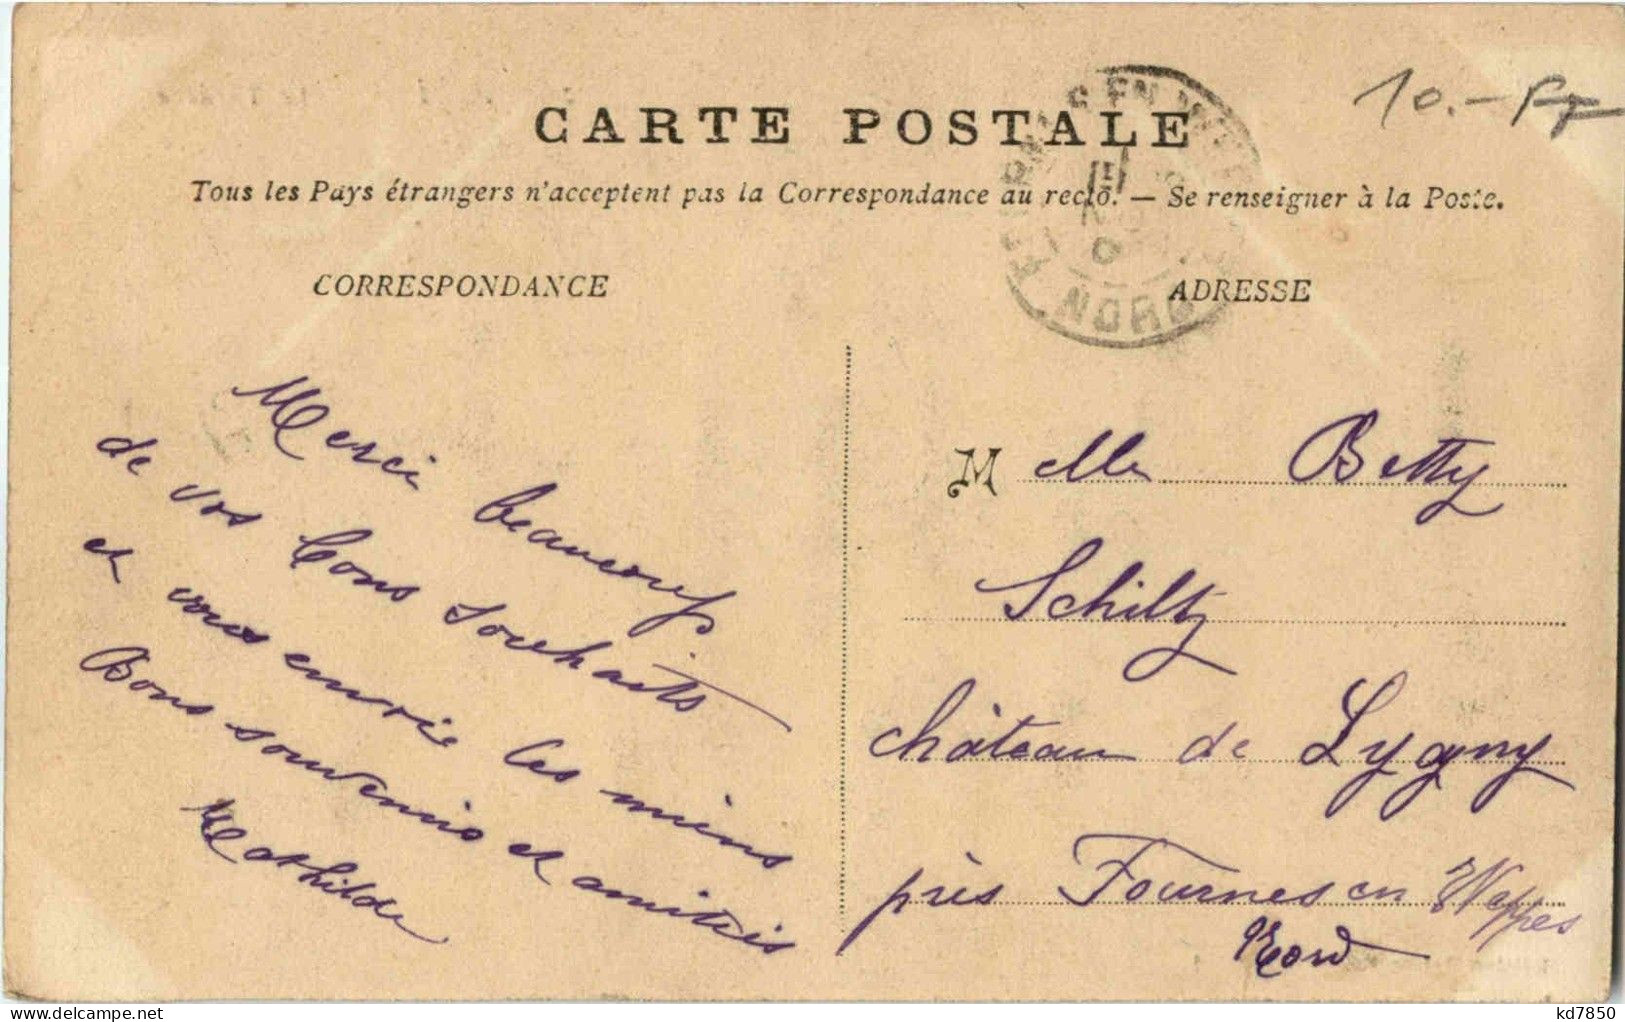 CARTE POSTALE
10.-
Tous les Pays étrangers n'acceptent pas la Correspondance au recto. — Se renseigner à la Poste.
CORRESPONDANCE
ADRESSE
NORD
Merci beaucoup
de vos bons souhaits
et vous envoie les miens
Bons souvenirs et amitiés
Mathilde
Melle Betty
Schiltz
château de Lygny
près Fournes en Wappes
Nord
delcampe.net
kd7850